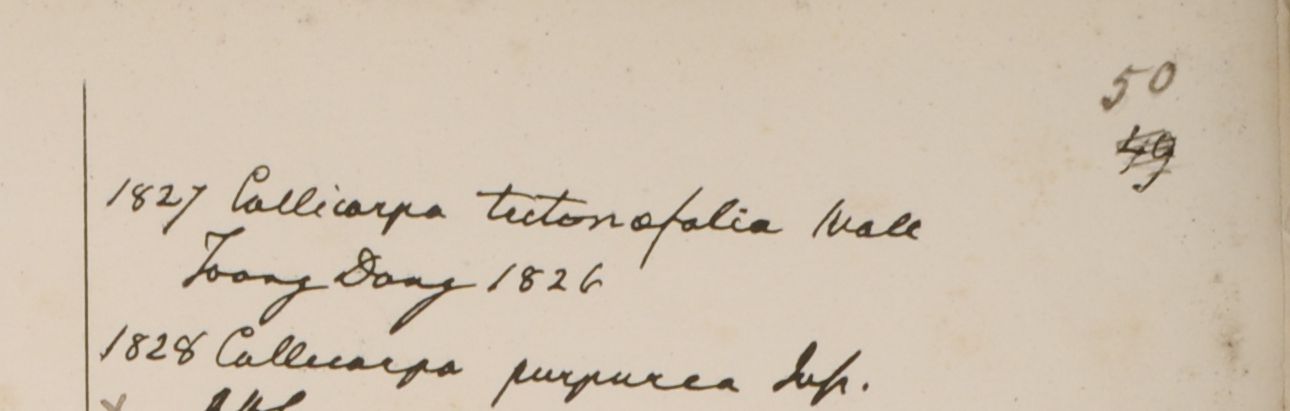 50
49
1827 Callicarpa tectonæfolia Wall
Toong Dong 1826
1828 Callicarpa purpurea Juss.